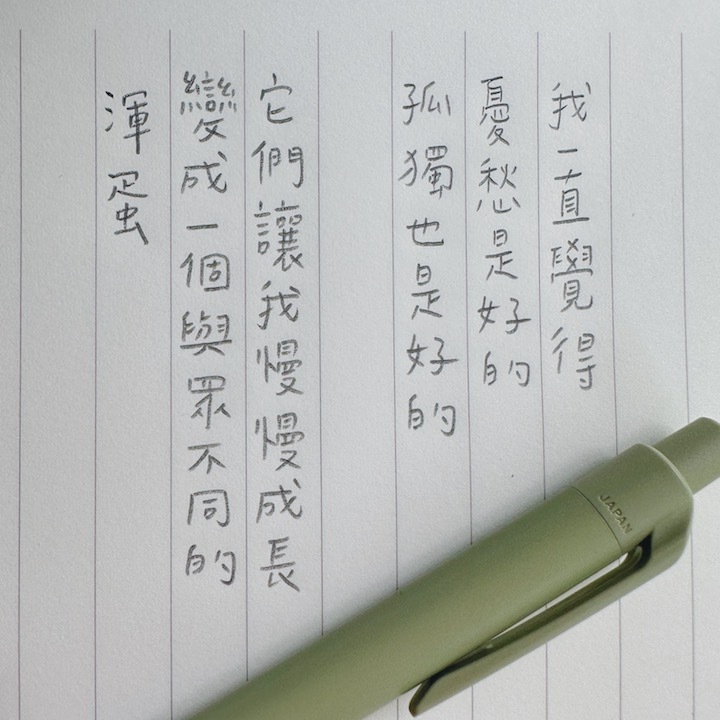 我一直覺得
憂愁是好的
孤獨也是好的
它們讓我慢慢成長
變成一個與眾不同的
渾蛋
JAPAN